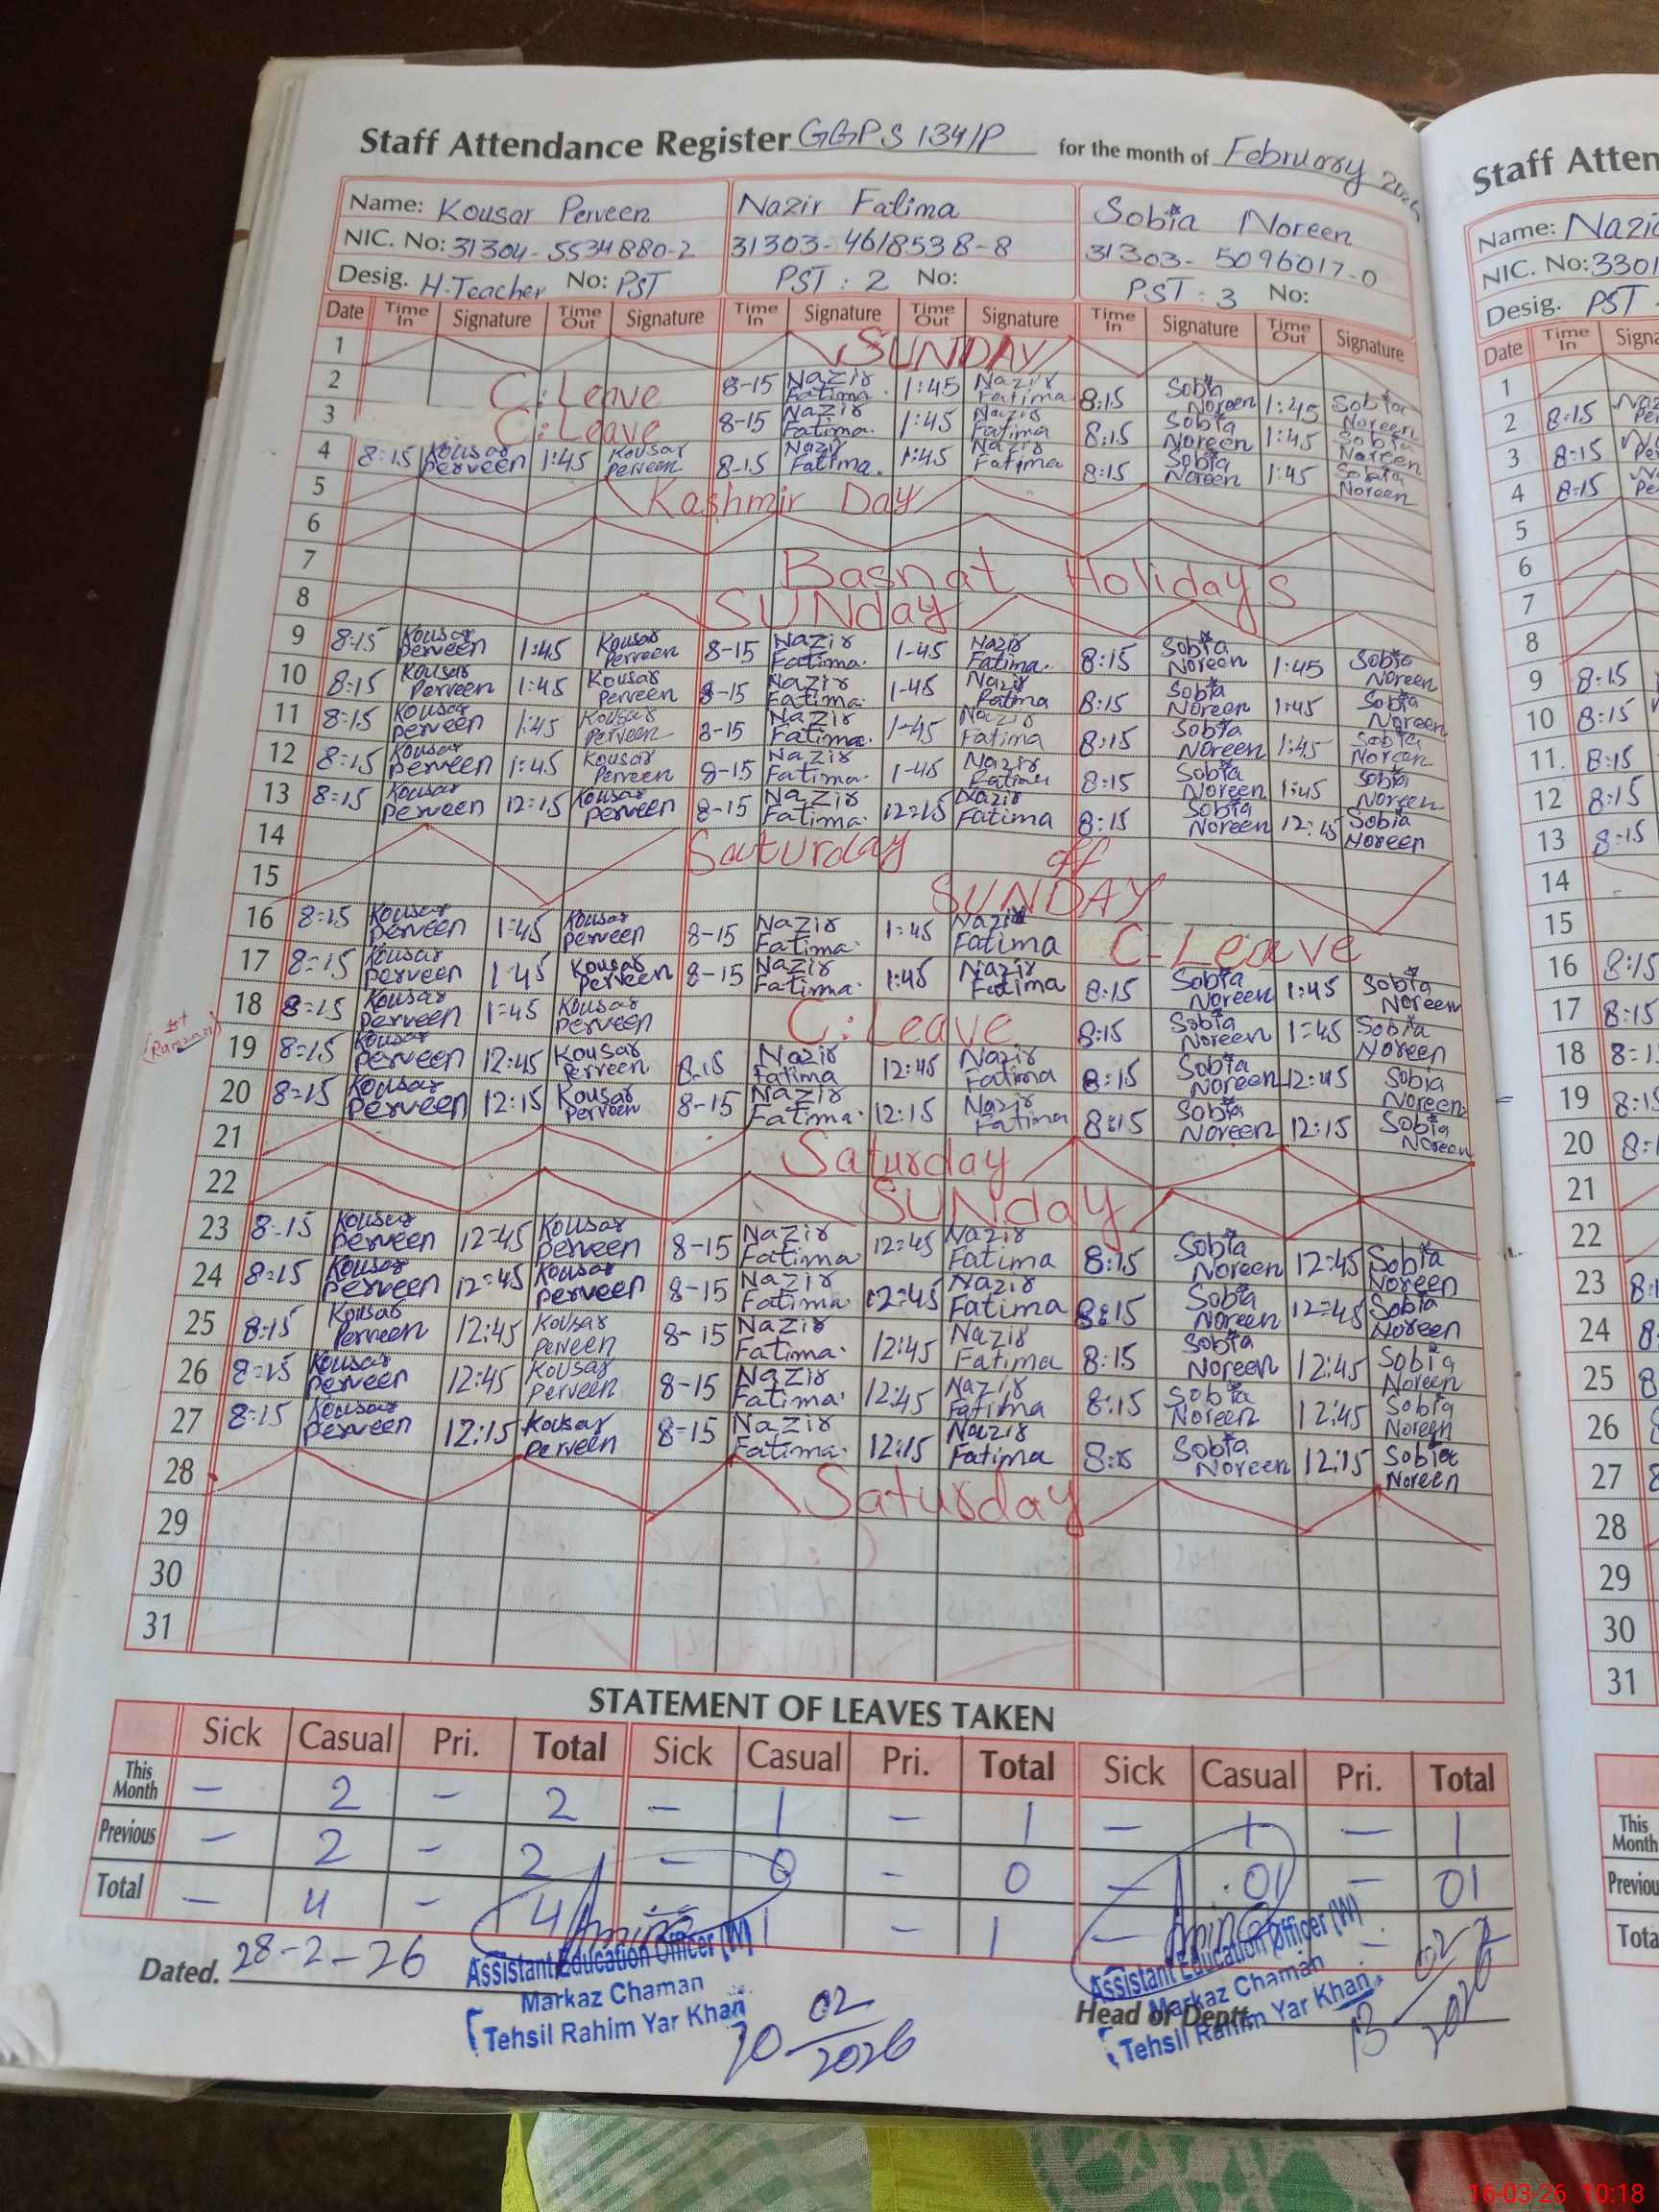 Staff Attendance Register GGPS 134/P for the month of February 2026
Name: Kousar Perveen Nazir Fatima Sobia Noreen
NIC. No: 31304-5534880-2 31303-4618538-8 31303-5096017-0
Desig. H.Teacher No: PST PST: 2 No: PST: 3 No:
Date Time In Signature Time Out Signature Time In Signature Time Out Signature Time In Signature Time Out Signature
1 SUNDAY
2 C.Leave 8-15 Nazir Fatima. 1:45 Nazir Fatima 8:15 Sobia Noreen 1:45 Sobia Noreen
3 C.Leave 8-15 Nazir Fatima. 1:45 Nazir Fatima 8:15 Sobia Noreen 1:45 Sobia Noreen
4 8:15 Kousar Perveen 1:45 Kousar Perveen 8-15 Nazir Fatima. 1:45 Nazir Fatima 8:15 Sobia Noreen 1:45 Sobia Noreen
5 Kashmir Day
6
7 Basnat Holidays
8 SUNday
9 8:15 Kousar Perveen 1:45 Kousar Perveen 8-15 Nazir Fatima. 1-45 Nazir Fatima. 8:15 Sobia Noreen 1:45 Sobia Noreen
10 8:15 Kousar Perveen 1:45 Kousar Perveen 8-15 Nazir Fatima. 1-45 Nazir Fatima 8:15 Sobia Noreen 1:45 Sobia Noreen
11 8:15 Kousar Perveen 1:45 Kousar Perveen 8-15 Nazir Fatima. 1-45 Nazir Fatima 8:15 Sobia Noreen 1:45 Sobia Noreen
12 8:15 Kousar Perveen 1:45 Kousar Perveen 8-15 Nazir Fatima. 1-45 Nazir Fatima 8:15 Sobia Noreen 1:45 Sobia Noreen
13 8:15 Kousar Perveen 12:15 Kousar Perveen 8-15 Nazir Fatima. 12:15 Nazir Fatima 8:15 Sobia Noreen Sobia Noreen
14 Saturday off
15 SUNDAY
16 8:15 Kousar Perveen 1:45 Kousar Perveen 8-15 Nazir Fatima. 1:45 Nazir Fatima C-Leave
17 8:15 Kousar Perveen 1:45 Kousar Perveen 8-15 Nazir Fatima. 1:45 Nazir Fatima 8:15 Sobia Noreen 1:45 Sobia Noreen
1st Ramzan
18 8:15 Kousar Perveen 1:45 Kousar Perveen C:Leave 8:15 Sobia Noreen 1:45 Sobia Noreen
19 8:15 Kousar Perveen 12:45 Kousar Perveen 8.15 Nazir Fatima 12:45 Nazir Fatima 8:15 Sobia Noreen 12:45 Sobia Noreen
20 8:15 Kousar Perveen 12:15 Kousar Perveen 8-15 Nazir Fatima. 12:15 Nazir Fatima 8:15 Sobia Noreen 12:15 Sobia Noreen
21 Saturday
22 SUNday
23 8:15 Kousar Perveen 12:45 Kousar Perveen 8-15 Nazir Fatima. 12:45 Nazir Fatima 8:15 Sobia Noreen 12:45 Sobia Noreen
24 8:15 Kousar Perveen 12:45 Kousar Perveen 8-15 Nazir Fatima. 12:45 Nazir Fatima 8:15 Sobia Noreen 12:45 Sobia Noreen
25 8:15 Kousar Perveen 12:45 Kousar Perveen 8-15 Nazir Fatima. 12:45 Nazir Fatima 8:15 Sobia Noreen 12:45 Sobia Noreen
26 8:15 Kousar Perveen 12:45 Kousar Perveen 8-15 Nazir Fatima. 12:45 Nazir Fatima 8:15 Sobia Noreen 12:45 Sobia Noreen
27 8:15 Kousar Perveen 12:15 Kousar Perveen 8-15 Nazir Fatima. 12:15 Nazir Fatima Sobia Noreen 12:15 Sobia Noreen
28 Saturday
29
30
31
STATEMENT OF LEAVES TAKEN
Sick Casual Pri. Total Sick Casual Pri. Total Sick Casual Pri. Total
This Month - 2 - 2 - 1 - 1 - 1 - 1
Previous - 2 - 2 - 0 - 0 - 01 - 01
Total - 4 - 4 1 - 1 - - 02
Dated. 28-2-26
Amina
Assistant Education Officer (W)
Markaz Chaman
Tehsil Rahim Yar Khan
02
2026
Head of Deptt.
Amina
Assistant Education Officer (W)
Markaz Chaman
Tehsil Rahim Yar Khan
13
2026
Staff Atten
Name: Nazi
NIC. No: 3301
Desig. PST
Date Time In Signa
1
2 8:15
3 8:15
4 8:15
5
6
7
8
9 8:15
10 8:15
11 8:15
12 8:15
13 8:15
14
15
16 8:15
17 8:15
18
19
20
21
22
23
24
25
26
27
28
29
30
31
This Month
Previou
Tota
16-03-26 10:18